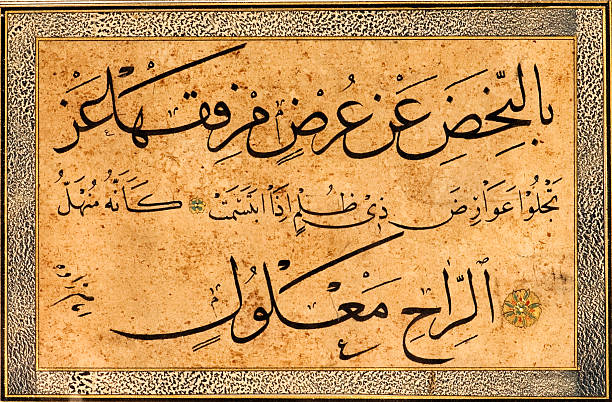 بِالنَّحْضِ عَنْ عُرُضٍ مِرْفَقُهَا عَنْ
تَجْلُوا عَوَارِضَ ذِى ظَلْمٍ اِذَا ابْتَسَمَتْ كَأَنَّهُ مُنْهَلٌ
الرَّاحِ مَعْلُولٌ